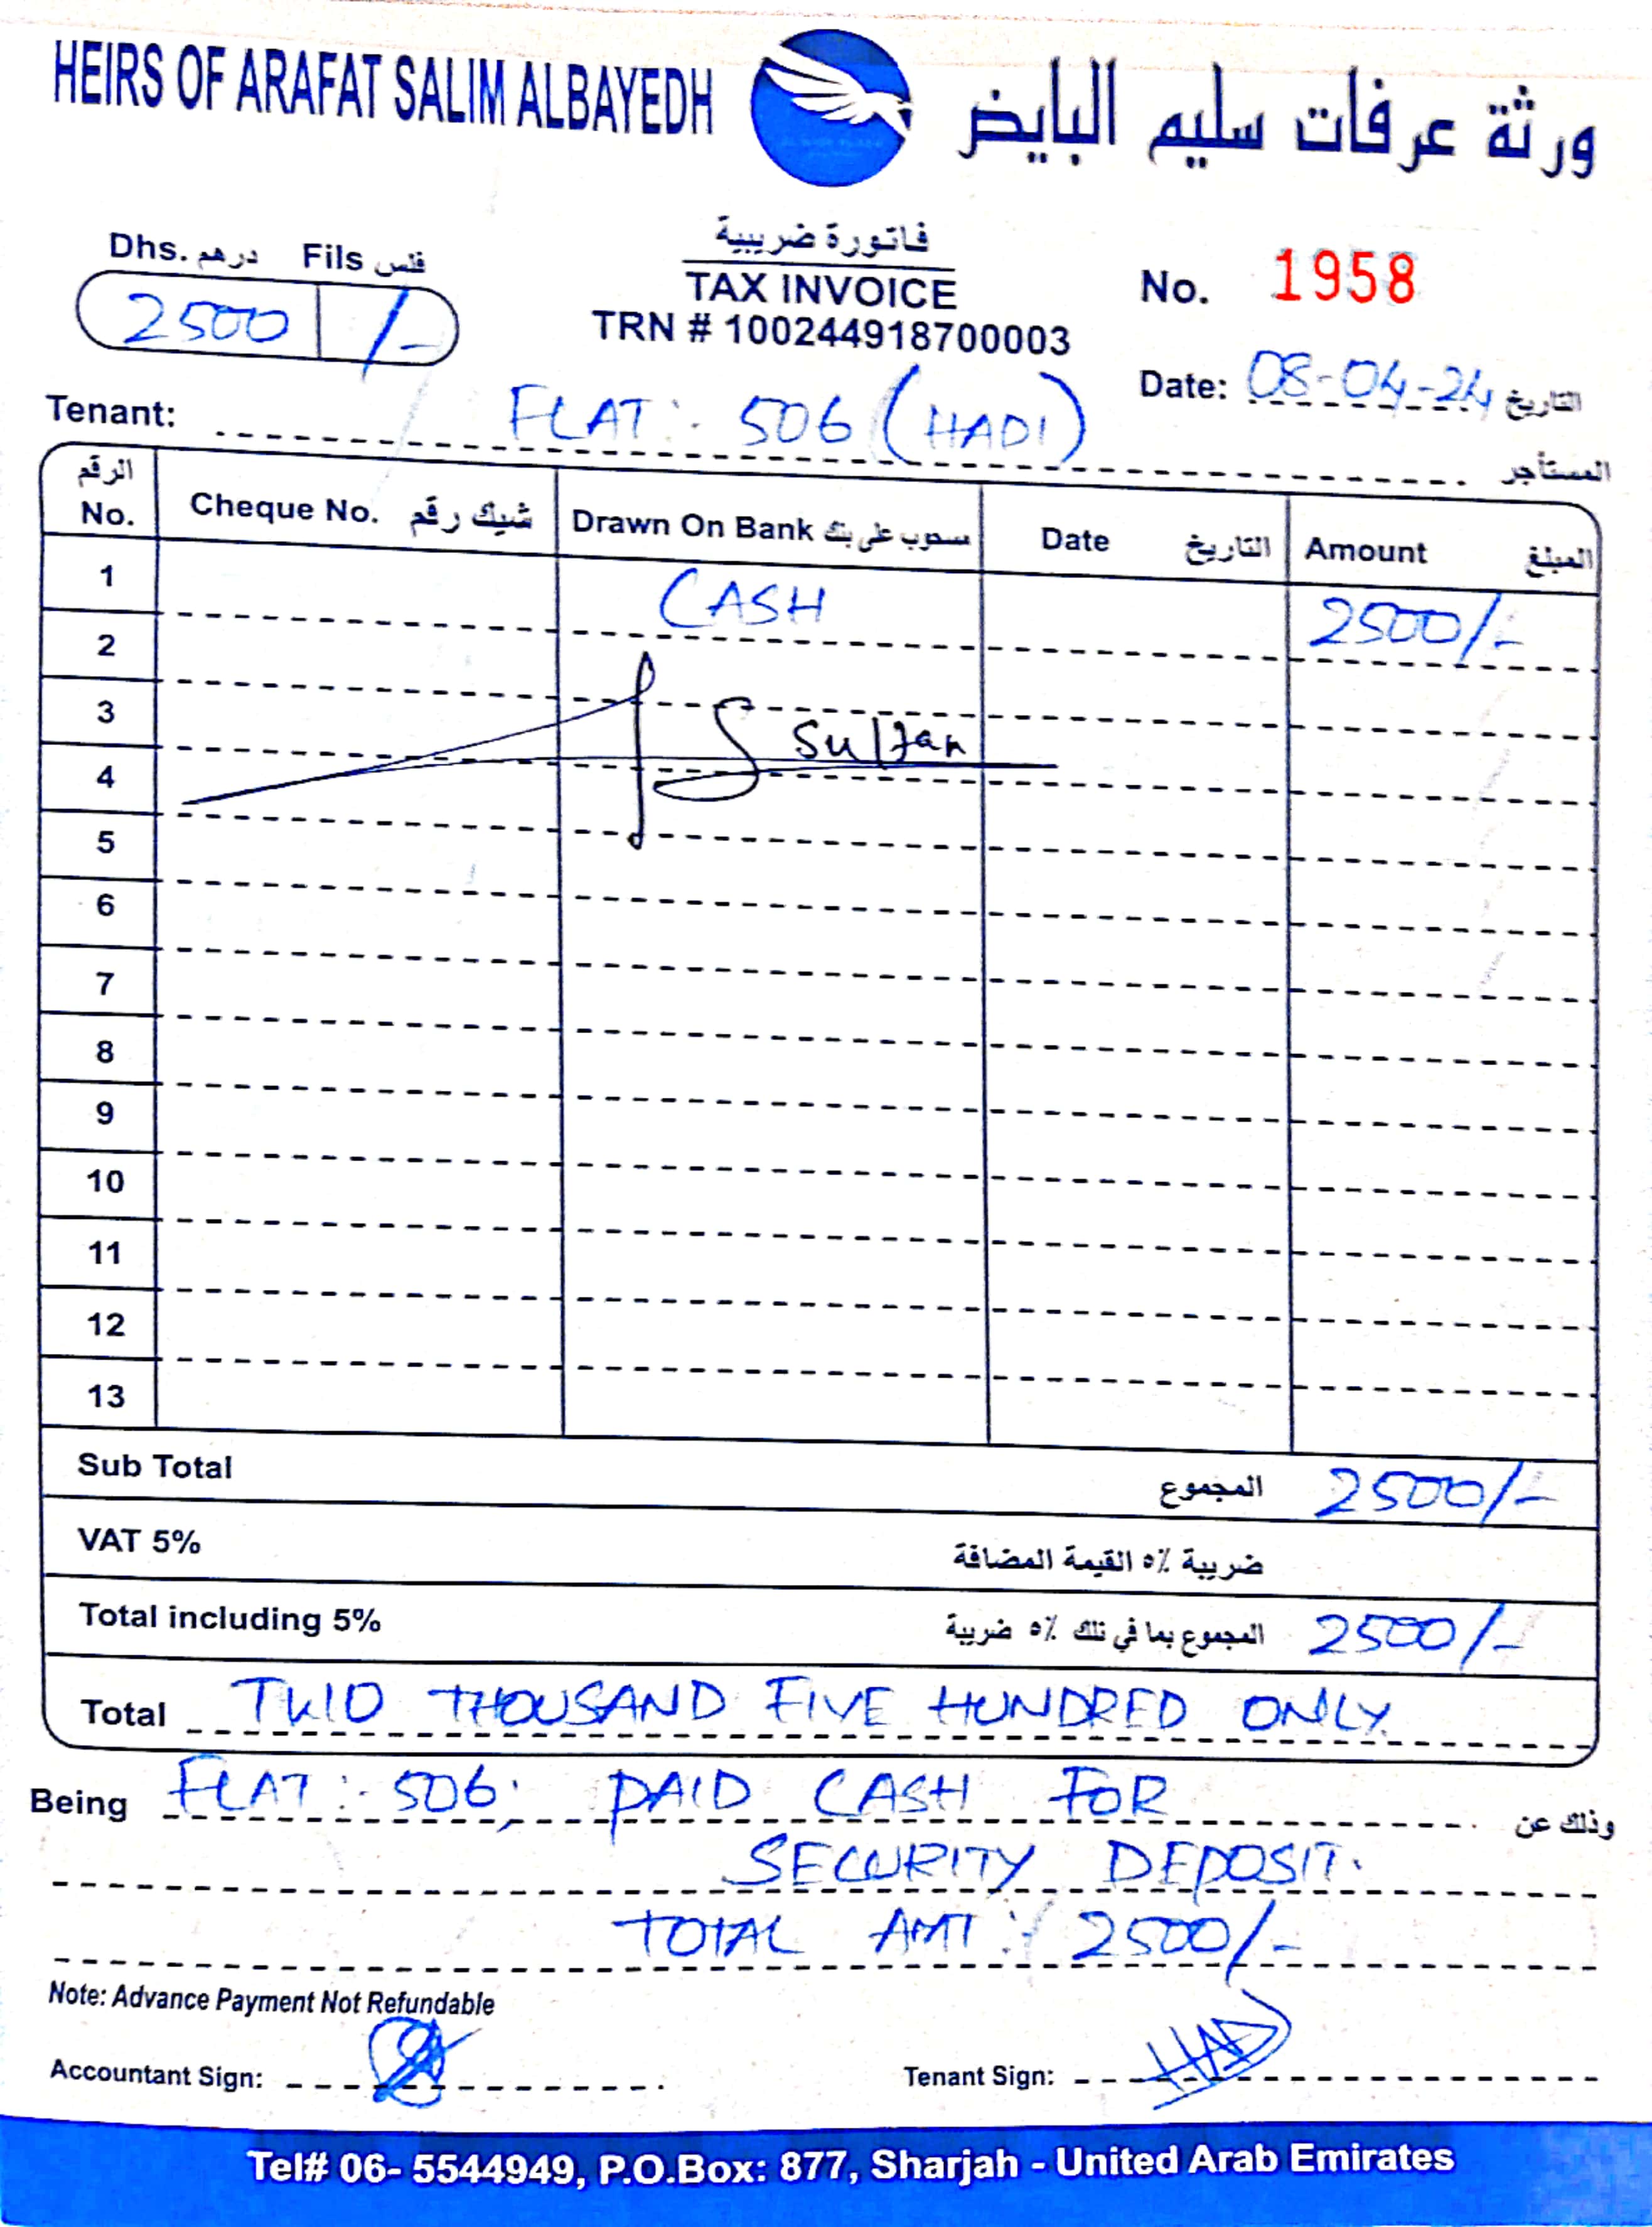 HEIRS OF ARAFAT SALIM ALBAYEDH ورثة عرفات سليم البايض
Dhs. درهم Fils فلس
2500 /-
فاتورة ضريبية
TAX INVOICE
TRN # 100244918700003
No. 1958
Date: 08-04-24 التاريخ
Tenant: FLAT: 506 (HADI) المستأجر
الرقم No. Cheque No. شيك رقم Drawn On Bank مسحوب على بنك Date التاريخ Amount المبلغ
1 CASH 2500/-
2
3 Sultan
4
5
6
7
8
9
10
11
12
13
Sub Total المجموع 2500/-
VAT 5% ضريبة ٥٪ القيمة المضافة
Total including 5% المجموع بما في تلك ٥٪ ضريبة 2500/-
Total TWO THOUSAND FIVE HUNDRED ONLY.
Being FLAT: 506, PAID CASH FOR وذلك عن
SECURITY DEPOSIT.
TOTAL AMT: 2500/-
Note: Advance Payment Not Refundable
Accountant Sign: Tenant Sign: HADI
Tel# 06- 5544949, P.O.Box: 877, Sharjah - United Arab Emirates